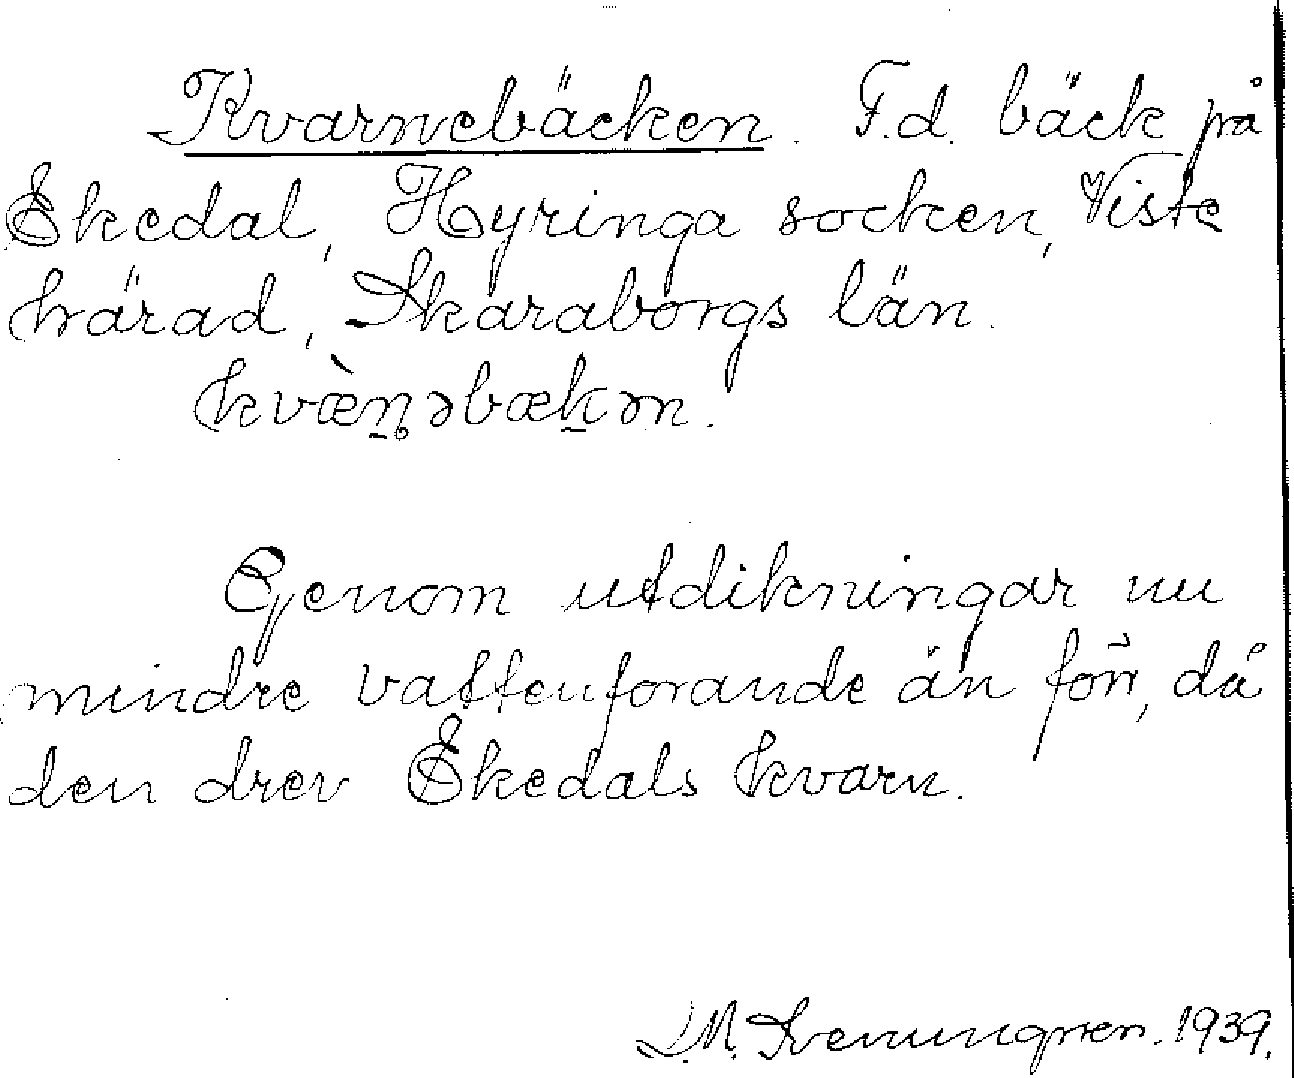 Kvarnebäcken. F.d. bäck på
Ekedal, Hyringa socken, Viste
härad, Skaraborgs län.
kvæ̀n̥əbækən.
Genom utdikningar nu
mindre vattenförande än förr, då
den drev Ekedals kvarn.
1939.